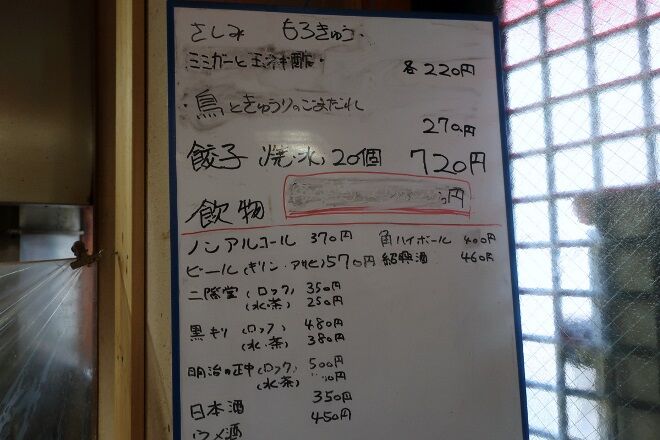 さしみ もろきゅう・
ミミガーと玉ネギ酢・ 各220円
・鳥ときゅうりのごまだれ
270円
餃子 焼・水 20個 720円
飲物 円
ノンアルコール 370円 角ハイボール 400円
ビール(キリン・アサヒ)570円 紹興酒 460円
二階堂(ロック) 350円
(水・茶) 250円
黒キリ(ロック) 480円
(水・茶) 380円
明治の正中(ロック) 500円
(水茶) 円
日本酒 350円
ウメ酒 450円